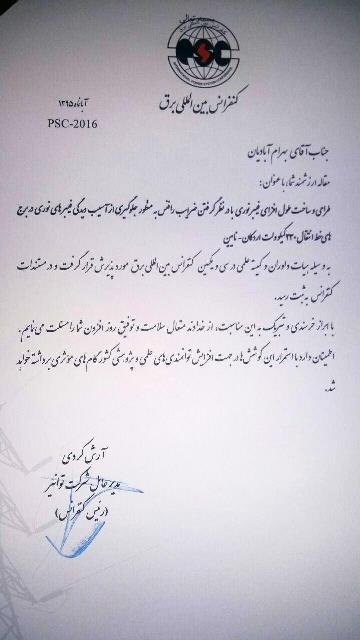 PSC
کنفرانس بین المللی برق
آبانماه ۱۳۹۵
PSC-2016
جناب آقای بهرام آبادیان
مقاله ارزشمند شما با عنوان:
طراحی و ساخت طول افزای فیبر نوری با در نظر گرفتن ضربات رقص به منظور جلوگیری از آسیب دیدگی فیبرهای نوری در برج
های خط انتقال ۲۳۰ کیلوولت اردکان- نایین
به وسیله هیات داوران و کمیته علمی در سی و یکمین کنفرانس بین المللی برق مورد پذیرش قرار گرفت و در مستندات
کنفرانس به ثبت رسید.
با ابراز خرسندی و تبریک به این مناسبت، از خداوند متعال سلامت و توفیق روز افزون شما را مسئلت می نمایم.
اطمینان دارد با استمرار این کوشش ها در جهت افزایش توانمندی های علمی و پژوهشی کشور گام های موثری برداشته خواهد
شد.
آرش کردی
مدیر عامل شرکت توانیر
(رئیس کنفرانس)